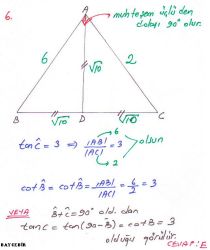 6.
A
muhteşem üçlü den
dolayı 90° olur.
6
√10
2
B
√10
D
√10
C
tan Ĉ = 3 ⇒ |AB| / |AC| = 3
6
2
olsun
cot B̂ = cot B̂ = |AB| / |AC| = 6/2 = 3
VEYA B̂+Ĉ=90° old. dan
tan C = tan(90-B) = cot B = 3
olduğu görülür.
CEVAP: E
BAYGEBİR